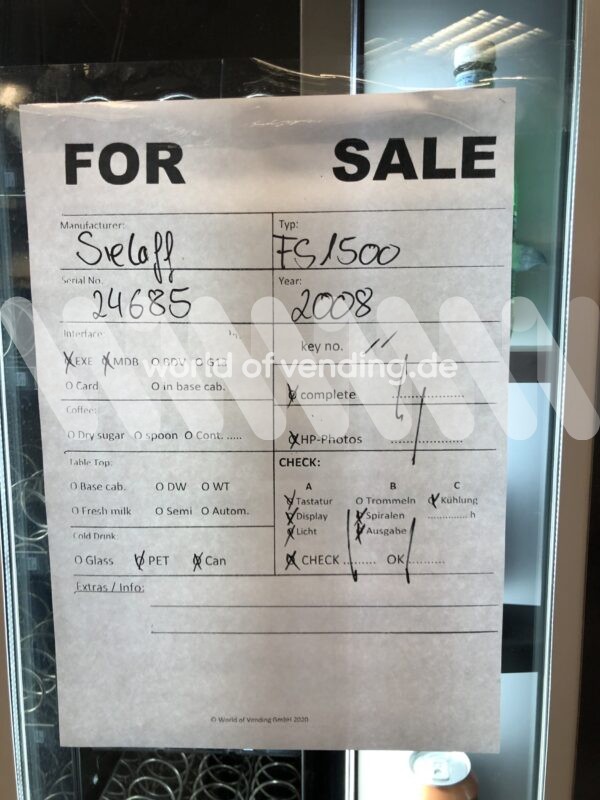 FOR SALE
Manufacturer: Typ:
Sielaff FS1500
Serial No. Year:
24685 2008
Interface
EXE MDB O BDV O G13 key no.
world of vending.de
O Card O in base cab. complete
Coffee:
O Dry sugar O spoon O Cont. ..... HP-Photos
Table Top: CHECK:
A B C
O Base cab. O DW O WT Tastatur O Trommeln Kühlung
O Fresh milk O Semi O Autom. Display Spiralen h
Cold Drink Licht Ausgabe
O Glass PET Can CHECK OK
Extras / Info:
© World of Vending GmbH 2020